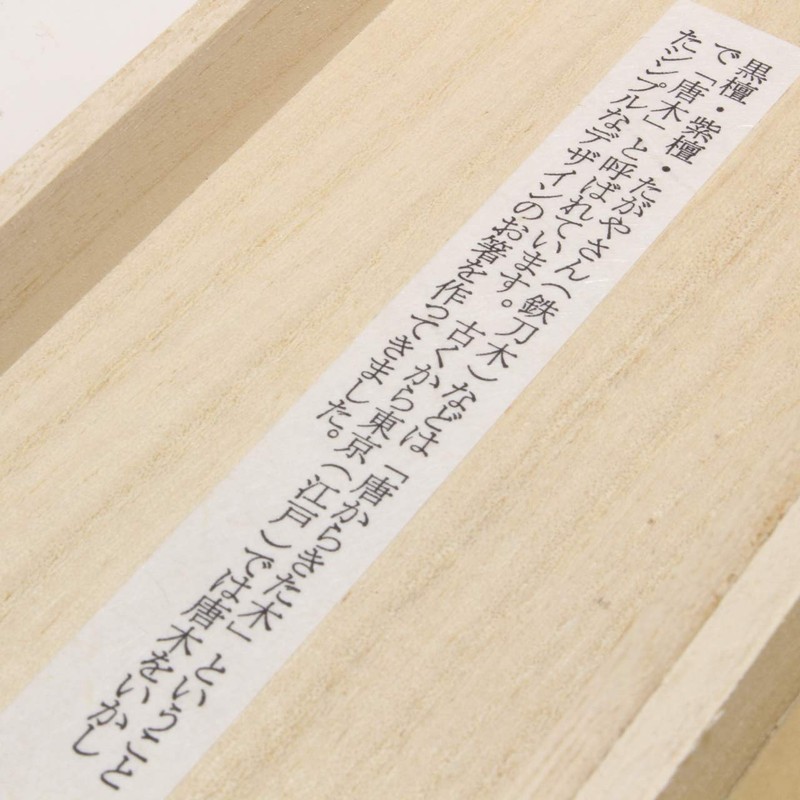 黒檀・紫檀・たがやさん（鉄刀木）などは「唐からきた木」ということ
で「唐木」と呼ばれています。古くから東京（江戸）では唐木をいかし
たシンプルなデザインのお箸を作ってきました。